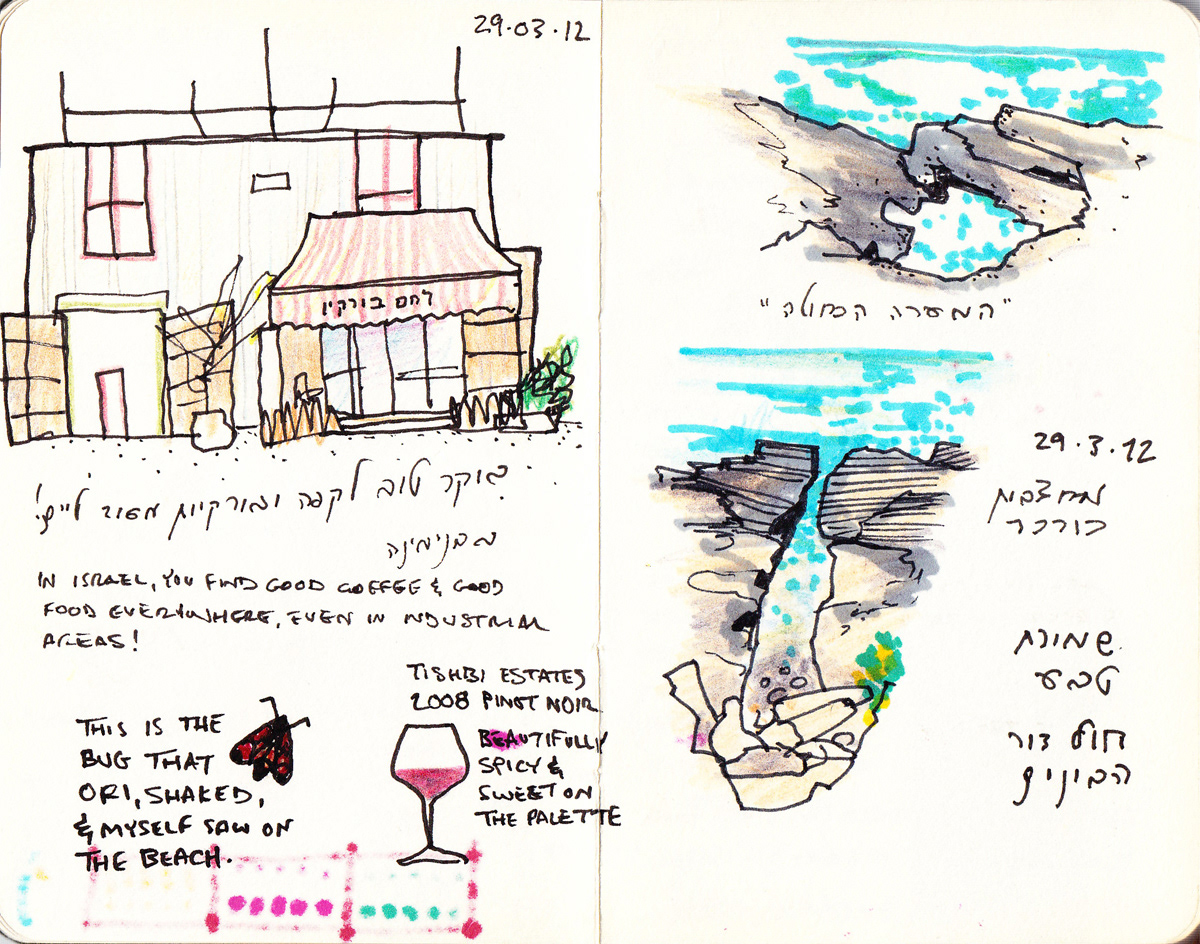 29·03·12
לחם בורקין
בוקר טוב לקפה ובורקיות
מבנימינה
IN ISRAEL, YOU FIND GOOD COFFEE & GOOD
FOOD EVERYWHERE, EVEN IN INDUSTRIAL
AREAS!
THIS IS THE
BUG THAT
ORI, SHAKED,
& MYSELF SAW ON
THE BEACH.
TISHBI ESTATES
2008 PINOT NOIR
BEAUTIFULLY
SPICY &
SWEET ON
THE PALETTE
"המערה הכחולה"
29·3·12
מחצבות
כורכר
שמורת
טבע
חוף דור
הבונים